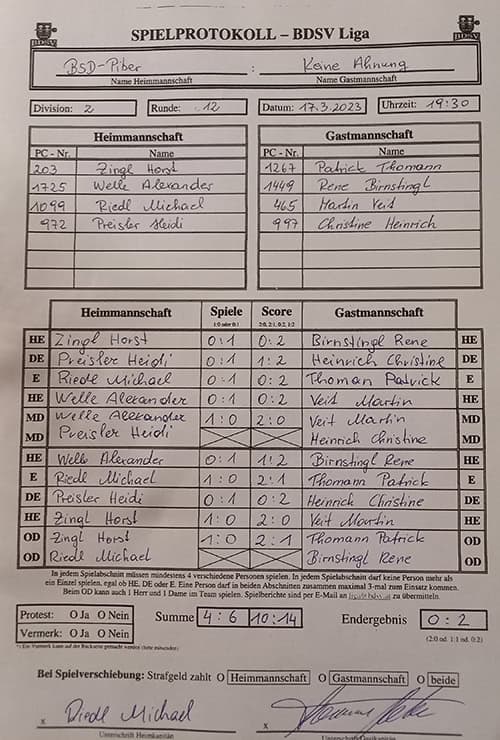 BDSV
SPIELPROTOKOLL – BDSV Liga
BDSV
BSD-Piber : Keine Ahnung
Name Heimmannschaft Name Gastmannschaft
Division: 2 Runde: 12 Datum: 17.3.2023 Uhrzeit: 19:30
Heimmannschaft Gastmannschaft
PC - Nr. Name PC - Nr. Name
203 Zingl Horst 1267 Patrick Thomann
1725 Welle Alexander 1449 Rene Birnstingl
1099 Riedl Michael 465 Martin Veit
972 Preisler Heidi 997 Christine Heinrich
Heimmannschaft Spiele Score Gastmannschaft
1:0 oder 0:1 2:0, 2:1, 0:2, 1:2
HE Zingl Horst 0:1 0:2 Birnstingl Rene HE
DE Preisler Heidi 0:1 1:2 Heinrich Christine DE
E Riedl Michael 0:1 0:2 Thoman Patrick E
HE Welle Alexander 0:1 0:2 Veit Martin HE
MD Welle Alexander 1:0 2:0 Veit Martin MD
MD Preisler Heidi Heinrich Christine MD
HE Welle Alexander 0:1 1:2 Birnstingl Rene HE
E Riedl Michael 1:0 2:1 Thomann Patrick E
DE Preisler Heidi 0:1 0:2 Heinrich Christine DE
HE Zingl Horst 1:0 2:0 Veit Martin HE
OD Zingl Horst 1:0 2:1 Thomann Patrick OD
OD Riedl Michael Birnstingl Rene OD
In jedem Spielabschnitt müssen mindestens 4 verschiedene Personen spielen. In jedem Spielabschnitt darf keine Person mehr als
ein Einzel spielen, egal ob HE, DE oder E. Eine Person darf in beiden Abschnitten zusammen maximal 3-mal zum Einsatz kommen.
Beim OD kann auch 1 Herr und 1 Dame im Team spielen. Spielberichte sind per E-Mail an zu übermitteln.
Protest: O Ja O Nein Summe 4:6 10:14 Endergebnis 0:2
Vermerk: O Ja O Nein (2:0 od. 1:1 od. 0:2)
*) Ein Vermerk kann auf der Rückseite gemacht werden (bitte mitsenden)
Bei Spielverschiebung: Strafgeld zahlt O Heimmannschaft O Gastmannschaft O beide
x Riedl Michael x
Unterschrift Heimkapitän Unterschrift Gastkapitän